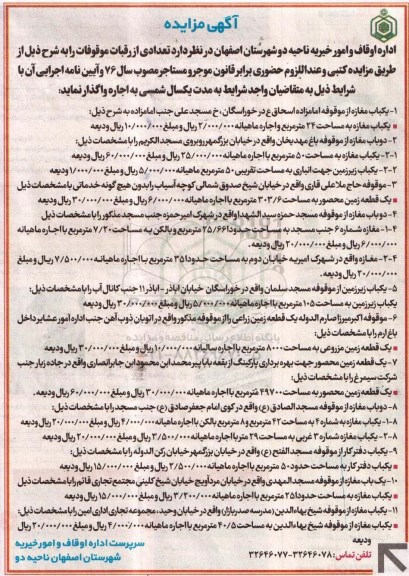 آگهی مزایده
اداره اوقاف و امور خیریه ناحیه دو شهرستان اصفهان در نظر دارد تعدادی از رقبات موقوفات را به شرح ذیل از
طریق مزایده کتبی و عنداللزوم حضوری برابر قانون موجر و مستاجر مصوب سال ۷۶ و آیین نامه اجرایی آن با
شرایط ذیل به متقاضیان واجد شرایط به مدت یکسال شمسی به اجاره واگذار نماید:
۱- یکباب مغازه از موقوفه امامزاده اسحاق ع در خوراسگان، خ مسجد علی جنب امامزاده به شرح ذیل:
یکباب مغازه به مساحت ۲۴ مترمربع و اجاره ماهیانه ۲/۰۰۰/۰۰۰ ریال و مبلغ ۱۰/۰۰۰/۰۰۰ ریال ودیعه
۲- دوباب مغازه از موقوفه باغ مهدیخان واقع در خیابان بزرگمهر روبروی مسجد الکریم را با مشخصات ذیل
۱-۲- یکباب مغازه به مساحت ۵۰ مترمربع با اجاره ماهیانه ۲۵/۰۰۰/۰۰۰ ریال و مبلغ ۶۰/۰۰۰/۰۰۰ ریال ودیعه
۲-۲- یکباب زیرزمین جهت انباری به مساحت تقریبی ۵۰ مترمربع ماهیانه ۵/۰۰۰/۰۰۰ ریال و مبلغ ۱/۰۰۰/۰۰۰ ریال ودیعه
۳- موقوفه حاج ملاعلی قاری واقع در خیابان شیخ صدوق شمالی کوچه آسیاب را بدون هیچ گونه خدماتی با مشخصات ذیل
یک قطعه زمین محصور به مساحت ۳۰۳/۶ مترمربع با اجاره ماهیانه ۶/۰۰۰/۰۰۰ ریال و مبلغ ۳۰/۰۰۰/۰۰۰ ریال ودیعه
۴- دوباب مغازه از موقوفه مسجد حمزه سیدالشهدا واقع در شهرک امیرحمزه جنب مسجد مذکور را با مشخصات ذیل
۱-۴- مغازه شماره ۶ جنب مسجد به مساحت حدودا ۲۵/۶۶ مترمربع و بالکن به مساحت ۷/۲۰ مترمربع با اجاره ماهیانه
۶/۰۰۰/۰۰۰ ریال و مبلغ ۲۰/۰۰۰/۰۰۰ ریال ودیعه.
۲-۴- مغازه واقع در شهرک امیریه خیابان دوم به مساحت حدودا ۳۵ مترمربع با اجاره ماهیانه ۷/۵۰۰/۰۰۰ ریال و مبلغ
۲۰/۰۰۰/۰۰۰ ریال ودیعه.
۵- یکباب زیرزمین از موقوفه مسجد سلمان واقع در خوراسگان خیابان اباذر - اباذر ۱۱ جنب کانال آب را با مشخصات ذیل:
یکباب زیرزمین به مساحت ۱۰۵ مترمربع با اجاره ماهیانه ۵/۵۰۰/۰۰۰ ریال و مبلغ ۳۰/۰۰۰/۰۰۰ ریال ودیعه
۶- موقوفه اکبرمیرزا صارم الدوله یک قطعه زمین زراعی را از موقوفه مذکور واقع در اتوبان ذوب آهن جنب اداره امور عشایر داخل
باغ ارم را با مشخصات ذیل:
یک قطعه زمین مزروعی به مساحت ۸۰۰۰ مترمربع با اجاره سالیانه ۱۰/۰۰۰/۰۰۰ ریال و مبلغ ۳۰/۰۰۰/۰۰۰ ریال ودیعه.
۷- یک قطعه زمین محصور جهت بهره برداری پارکینگ از بقعه بابا پیر محمد ابن محمود ابن جابر انصاری واقع در جاده زیار جنب
شرکت سیمرغ را با مشخصات ذیل:
یک قطعه زمین محصور به مساحت ۴۹۷۰۰ مترمربع با اجاره ماهیانه ۳۰/۰۰۰/۰۰۰ ریال و مبلغ ۶۰/۰۰۰/۰۰۰ ریال ودیعه.
۸- دوباب مغازه از موقوفه مسجد الصادق (ع) واقع در کوی امام جعفرصادق (ع) جنب مسجد را با مشخصات ذیل:
۱-۸- یکباب مغازه به شماره ۴ به مساحت ۴۲ مترمربع و ۸ مترمربع بالکن با اجاره ماهیانه ۴/۰۰۰/۰۰۰ ریال و مبلغ ۲۰/۰۰۰/۰۰۰ ریال ودیعه
۲-۸- یکباب مغازه شماره ۳ غربی به مساحت ۲۹ متر با اجاره ماهیانه ۳/۵۰۰/۰۰۰ ریال و مبلغ ۲۰/۰۰۰/۰۰۰ ریال ودیعه
۹- یکباب دفتر کار از موقوفه مسجد الفتح (ع) واقع در خیابان بزرگمهر خیابان رکن الدوله را با مشخصات ذیل:
یکباب دفتر کار به مساحت حدود ۵۰ مترمربع با اجاره ماهیانه ۲/۵۰۰/۰۰۰ ریال و مبلغ ۱۵/۰۰۰/۰۰۰ ریال ودیعه
۱۰- یک باب مغازه از موقوفه مسجد المهدی واقع در خیابان مرداویج خیابان شیخ کلینی مجتمع تجاری قائم را با مشخصات ذیل
یکباب مغازه به مساحت حدودا ۲۵ مترمربع با اجاره ماهیانه ۳/۲۰۰/۰۰۰ ریال و مبلغ ۱۵/۰۰۰/۰۰۰ ریال ودیعه
۱۱- یکباب مغازه از موقوفه شیخ بهاءالدین (مدرسه صدر بازار) واقع در خیابان وحید، مجموعه تجاری اداری امین را با مشخصات ذیل:
یکباب مغازه از موقوفه شیخ بهاءالدین به مساحت ۴۰/۵ مترمربع با اجاره ماهیانه ۴/۰۰۰/۰۰۰ ریال و مبلغ ۲۰/۰۰۰/۰۰۰ ریال
ودیعه
تلفن تماس: ۳۲۶۴۶۰۷۸-۳۲۶۴۶۰۷۷
سرپرست اداره اوقاف و امور خیریه
شهرستان اصفهان ناحیه دو